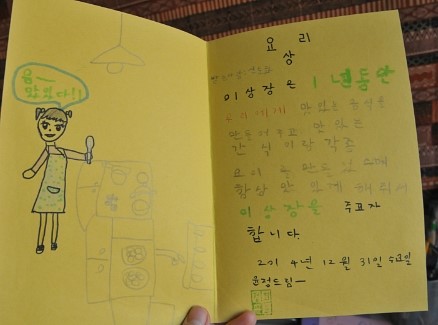 음~
맛있다!!
요리
상
이 상장은 1년동안
우리에게 맛있는 음식을
만들어 주고 맛있는
간식이랑 각종
요리를
항상 맛있게 해줘서
이 상장을 주표자
합니다.
2014년 12월 31일 수요일
드림ㅡ